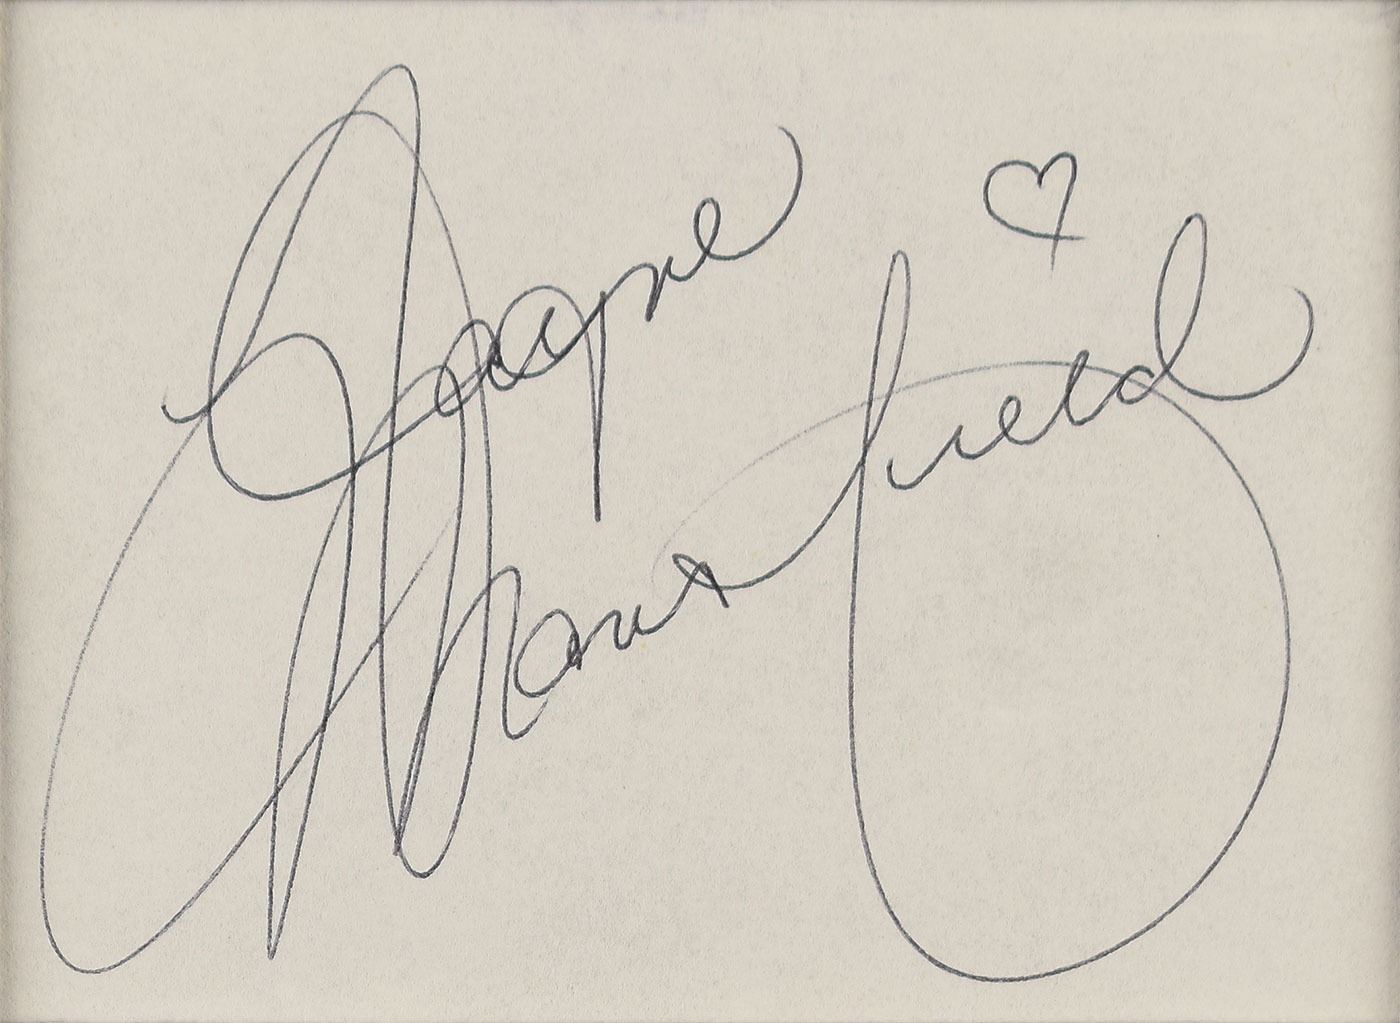 Jayne
Mansfield